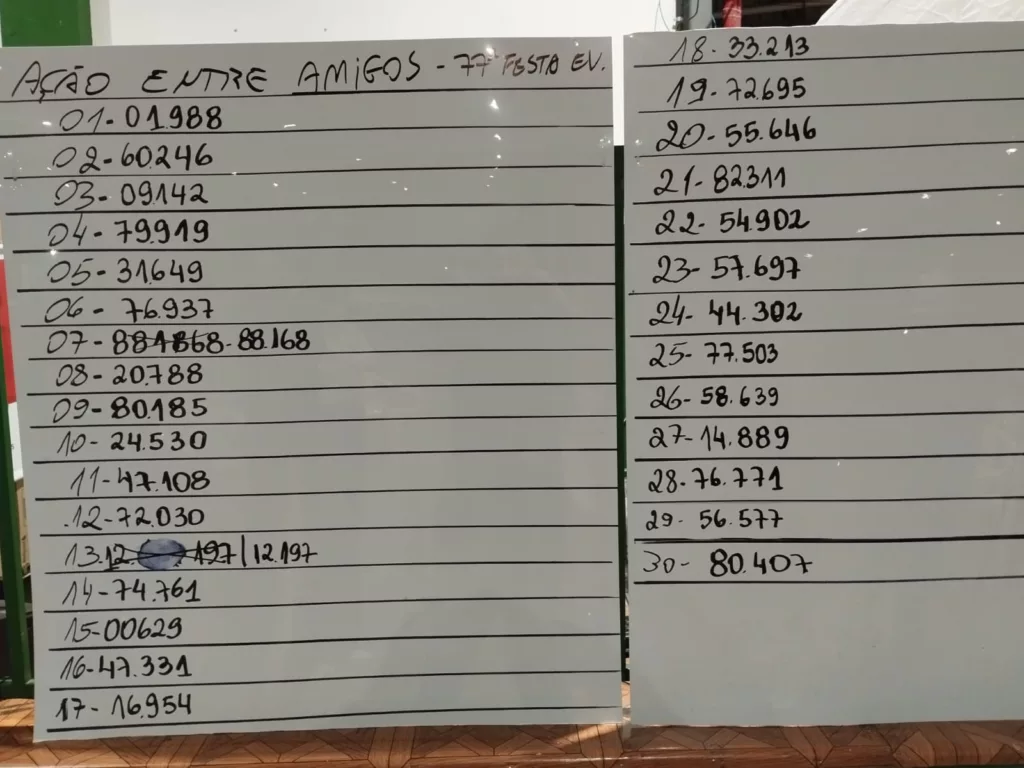 AÇÃO ENTRE AMIGOS - 77ª FESTA EV.
01- 01.988
02- 60.246
03- 09.142
04- 79.919
05- 31.649
06- 76.937
07- 881868- 88.168
08- 20.788
09- 80.185
10- 24.530
11- 47.108
12- 72.030
13. 12. 197 | 12.197
14- 74.761
15- 00629
16- 47.331
17- 16.954
18- 33.213
19- 72.695
20- 55.646
21- 82.311
22- 54.902
23- 57.697
24- 44.302
25- 77.503
26- 58.639
27- 14.889
28- 76.771
29- 56.577
30- 80.407